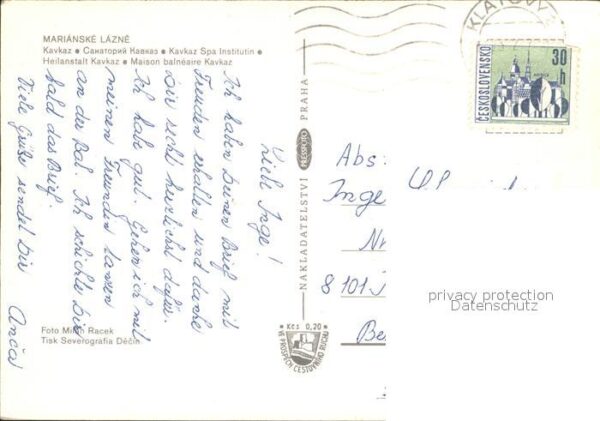 MARIÁNSKÉ LÁZNĚ
Kavkaz • Санаторий Кавказ • Kavkaz Spa Institutin •
Heilanstalt Kavkaz • Maison balnéaire Kavkaz
Lieb Inge!
Ich haben Deinen Brief mit
Freuden erhallen und danke
Dir recht herzlichst dafür.
Ich habe gut. Gehen ich mit
meinen Freunden tanzen
an der Bal. Ich schichte Dir
bald das Brief.
Viele Grüße sendet Dir
Anča
Foto Milan Racek
Tisk Severografia Děčín
NAKLADATELSTVÍ PRESSFOTO PRAHA
Kčs 0,20
VE PROSPĚCH CESTOVNÍHO RUCHU
KLATOVY
ČESKOSLOVENSKO
30 h
Abs:
Inge
Nr
8101
Be
privacy protection
Datenschutz